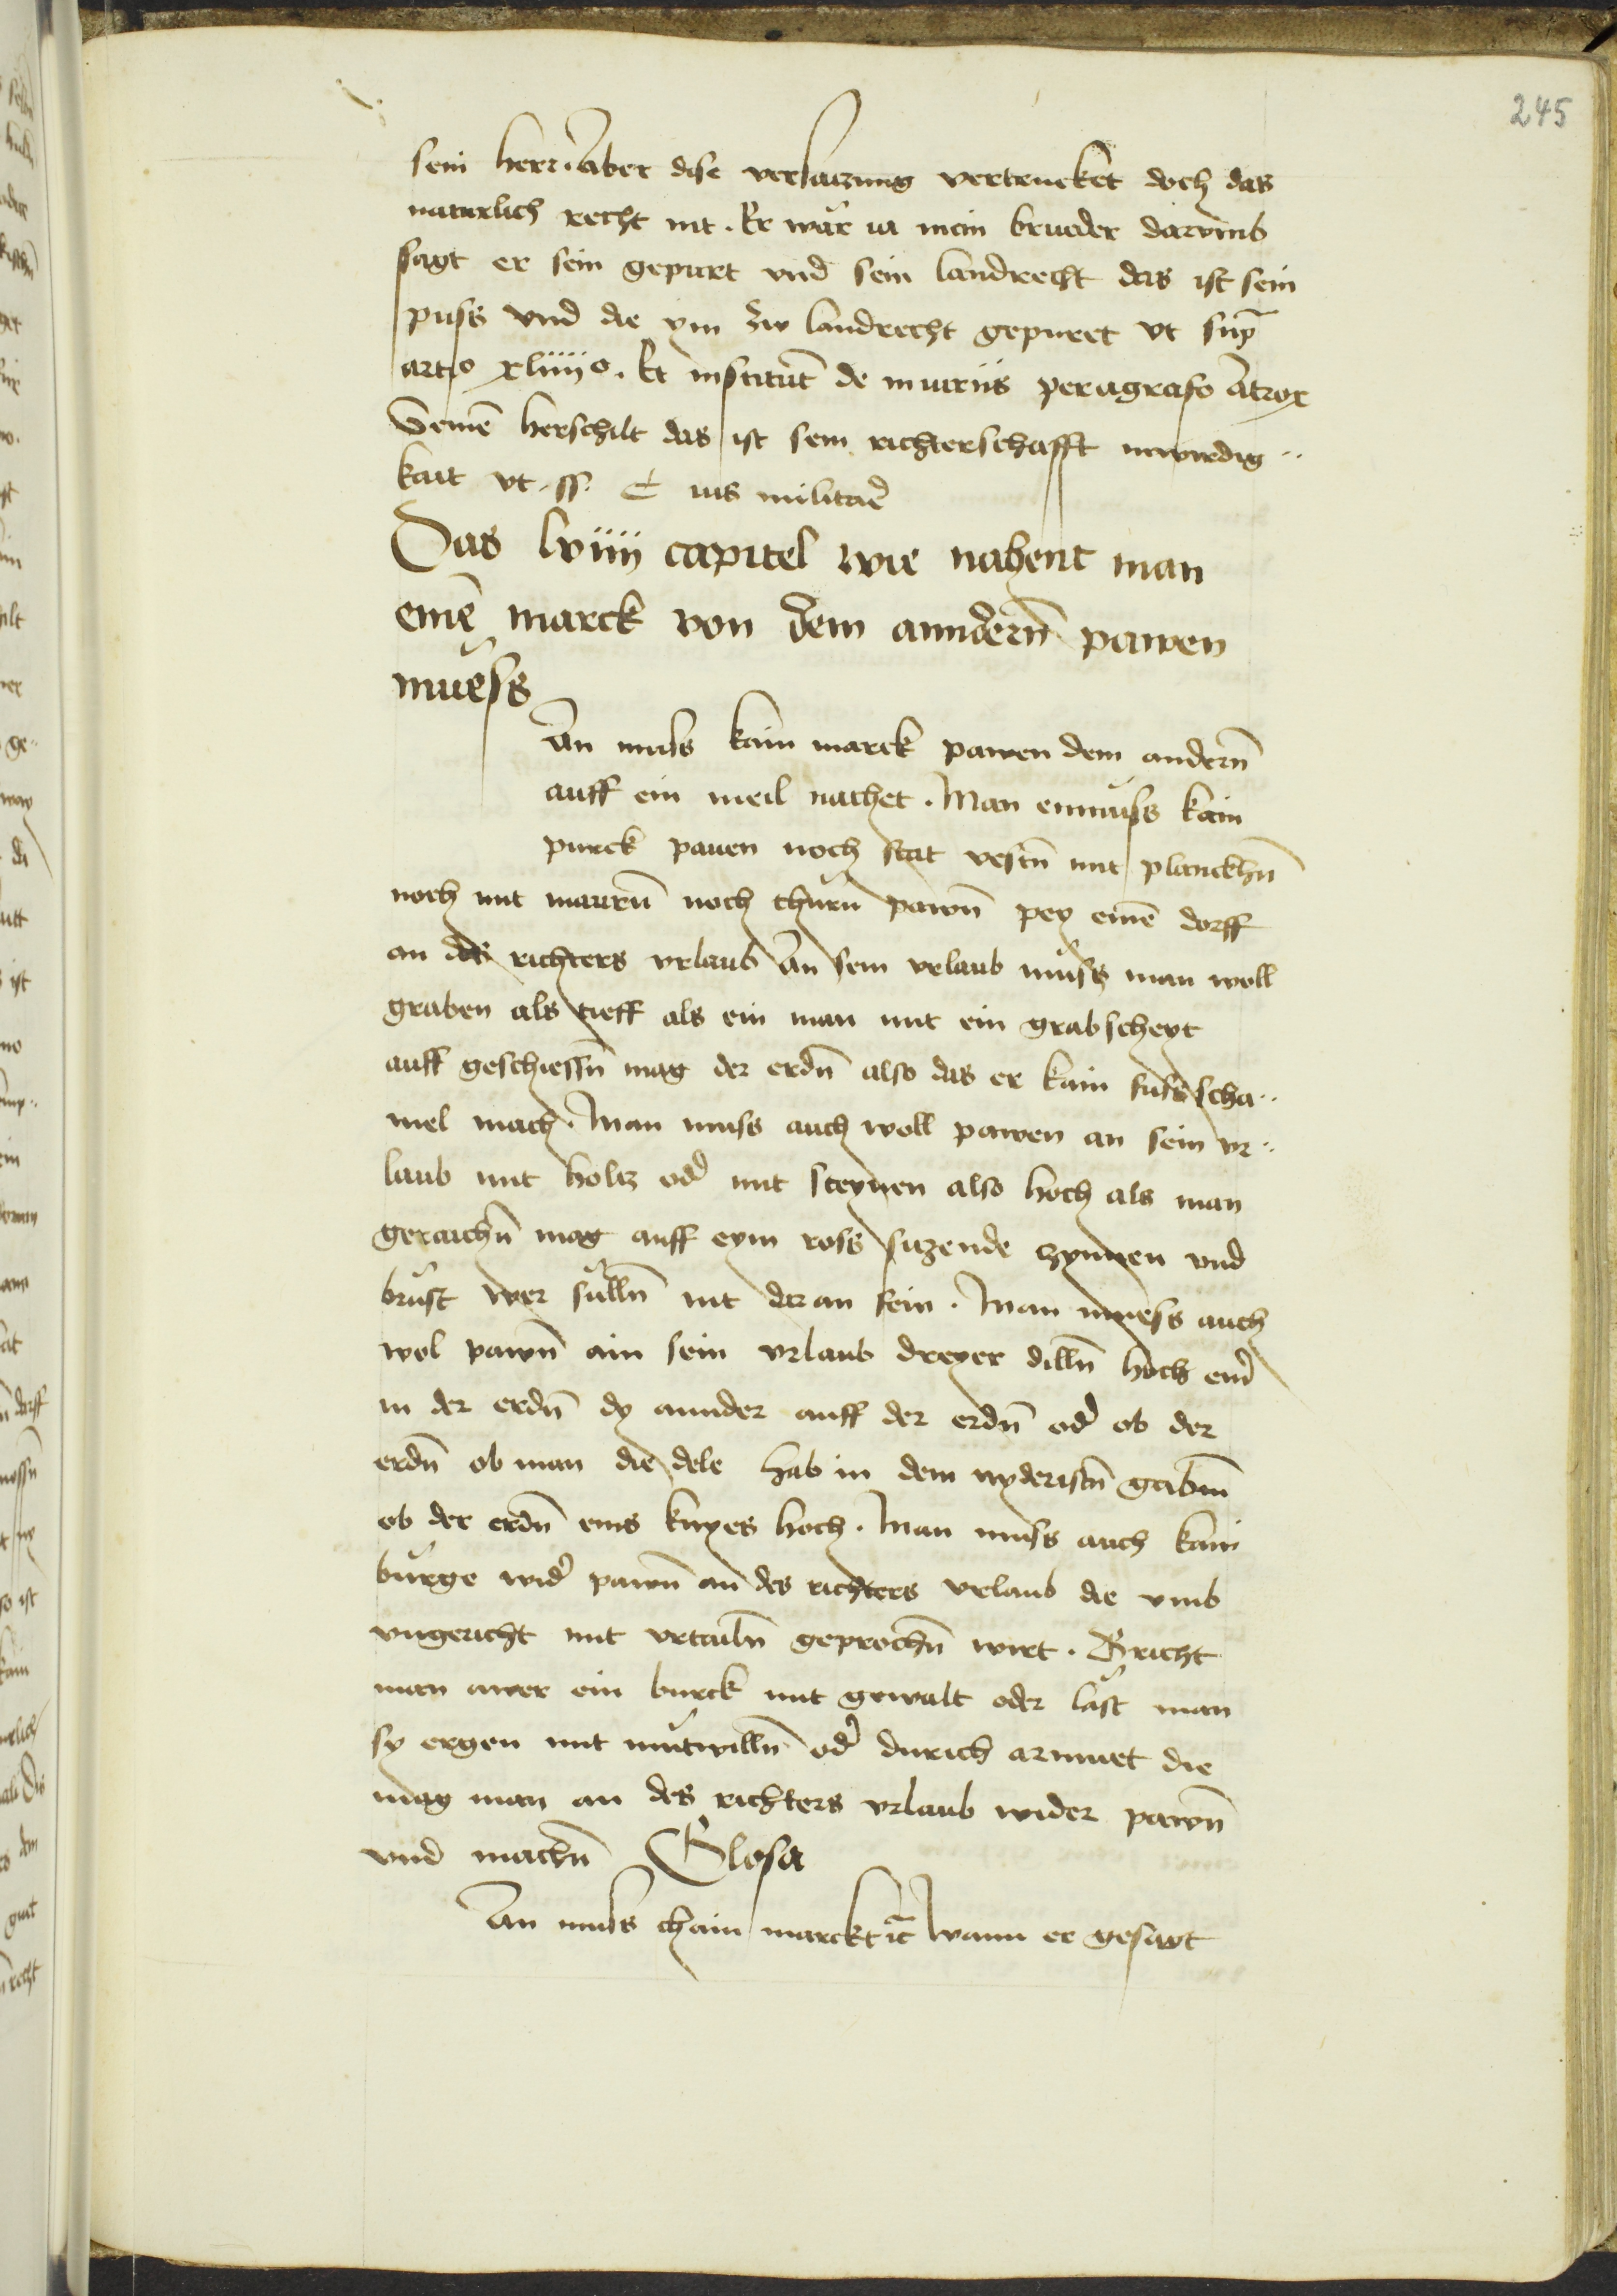 245
sein herr Aber dise versaczung vertrucket doch das
naturlich recht nit . Er wăr ia mein brueder darvmb
sagt er sein gepurt vnd sein landrecht das ist sein
puss vnd die ym zw landrecht gepuret vt sup̄
artᵒ xliiiiᵒ . Et institut̄ de iniuriis peragrafo Atrox
Seinē herschilt das ist sein richterschafft inwirdig¨
kait vt . ff . C ius militaꝛ̄
Das lviiii capitel wie nahent man
einē marck von dem anndern̄ pawen
muess
An muss kain marck pawen dem andern̄
auff ein meil nachet . Man enmuss kain
purck pauen noch stat vestn̄ mit planckhn̄
noch mit maurn̄ noch thurn̄ pawn̄ pey einē dorff
on des richters vrlaub An sein vrlaub muss man woll
graben als tieff als ein man mit ein grabscheyt
auff geschiessn̄ mag der erdn̄ also das er kain fussscha¨
mel mach . Man muss auch woll pawen an sein vr¨
laub mit holtz od̄ mit steynen also hoch als man
geraichn̄ mag auff eym ross siczende zynnen vnd
brust wer sulln̄ nit daran sein . Man muess auch
wol pawn̄ ain sein vrlaub dreyer dilln̄ hoch ein̄
in der erdn̄ dy annder auff der erdn̄ od̄ ob der
erdn̄ ob man die dele hab in dem nyderistn̄ gabm̄
ob der erdn̄ eins knyes hoch . Man muss auch kain
burge wid̄ pawn̄ an des richters vrlaub die vmb
vngericht mit vrtailn̄ geprochn̄ wirt . Bricht
man awer ein burck mit gewalt oder lăst man
sy ergen mit mutwilln̄ od̄ durich armuet die
mag man an des richters vrlaub wider pawn̄
vnd machn̄ Glosa
An muss chain marckt ꝛc̄ Wann er gesagt